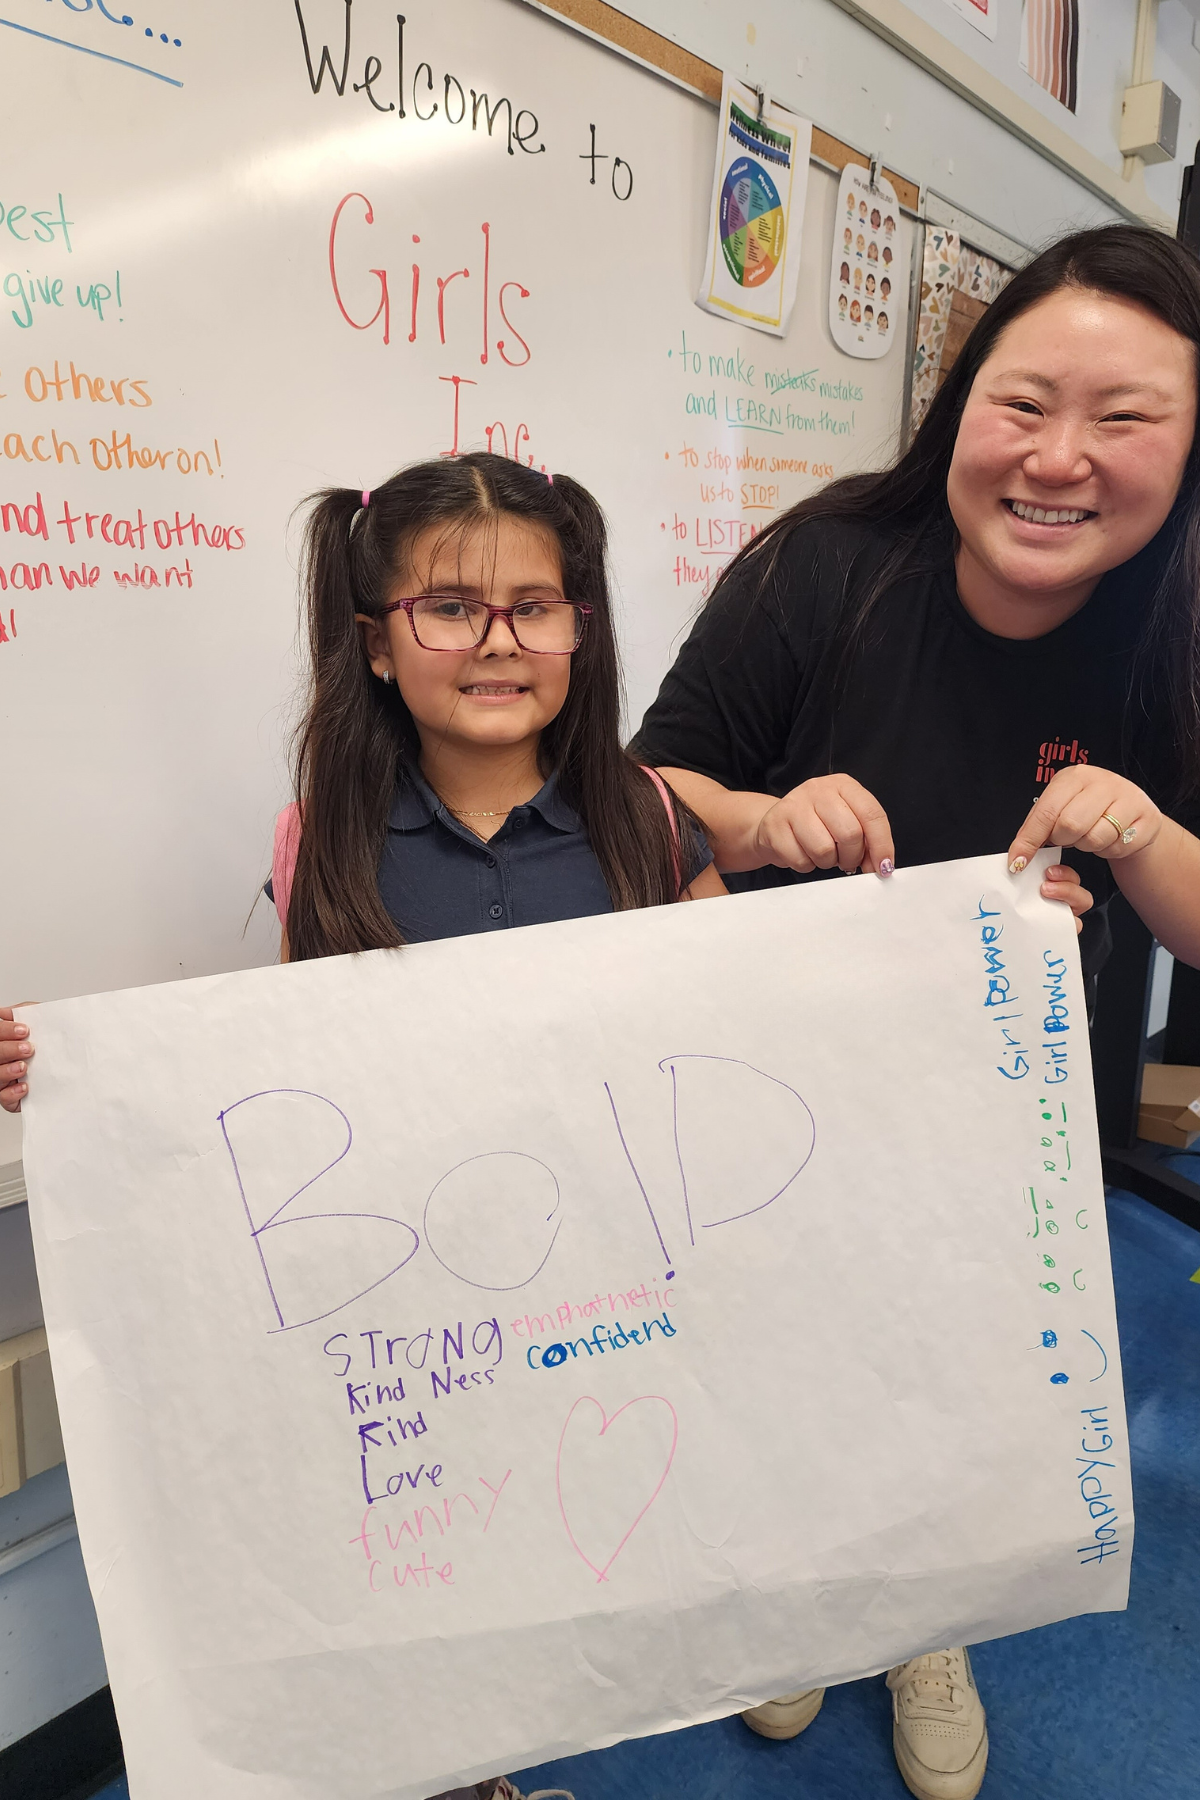 Welcome to
Girls
Inc.
give up!
others
each other on!
and treat others
than we want
Wellness Wheel
• to make misteaks mistakes
and LEARN from them!
• to stop when someone asks
us to STOP!
• to LISTEN
they
girls
BolD
STroNg emphathetic
Kind Ness confidend
Kind
Love
funny
cute
Girl power
Girl Power
Happy Girl